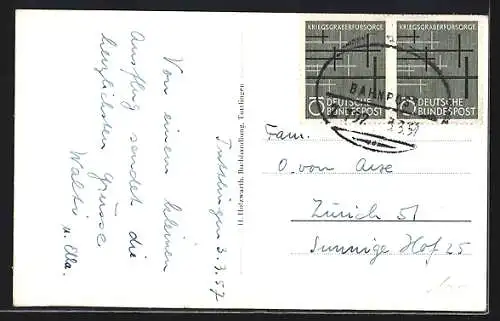 Tuttlingen 3.3.57
Von einem kleinen
Ausflug sendet die
herzlichsten Grüsse
Walti
u. Ella.
H. Holzwarth, Buchhandlung, Tuttlingen
KRIEGSGRÄBERFÜRSORGE
10 DEUTSCHE
BUNDESPOST
KRIEGSGRÄBERFÜRSORGE
DEUTSCHE
BUNDESPOST
BAHNPOST
3.3.57
Fam.
O. von Arx
Zürich 51
Sunnige Hof 25